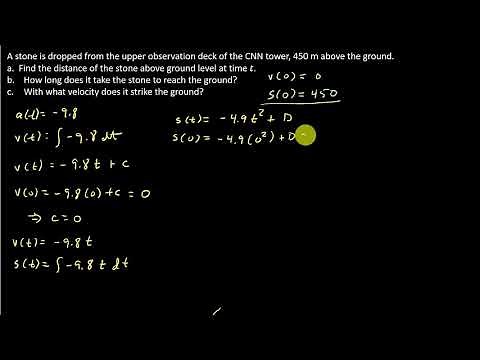 A stone is dropped from the upper observation deck of the CNN tower, 450 m above the ground.
a. Find the distance of the stone above ground level at time t.
b. How long does it take the stone to reach the ground?
c. With what velocity does it strike the ground?
v(0) = 0
s(0) = 450
a(t) = -9.8
v(t) = ∫ -9.8 dt
v(t) = -9.8 t + c
v(0) = -9.8(0) + c = 0
⇒ c = 0
v(t) = -9.8 t
s(t) = ∫ -9.8 t dt
s(t) = -4.9 t² + D
s(0) = -4.9(0²) + D =